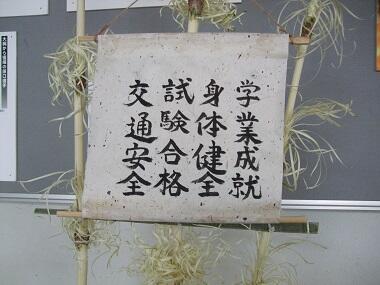 学業成就
身体健全
試験合格
交通安全